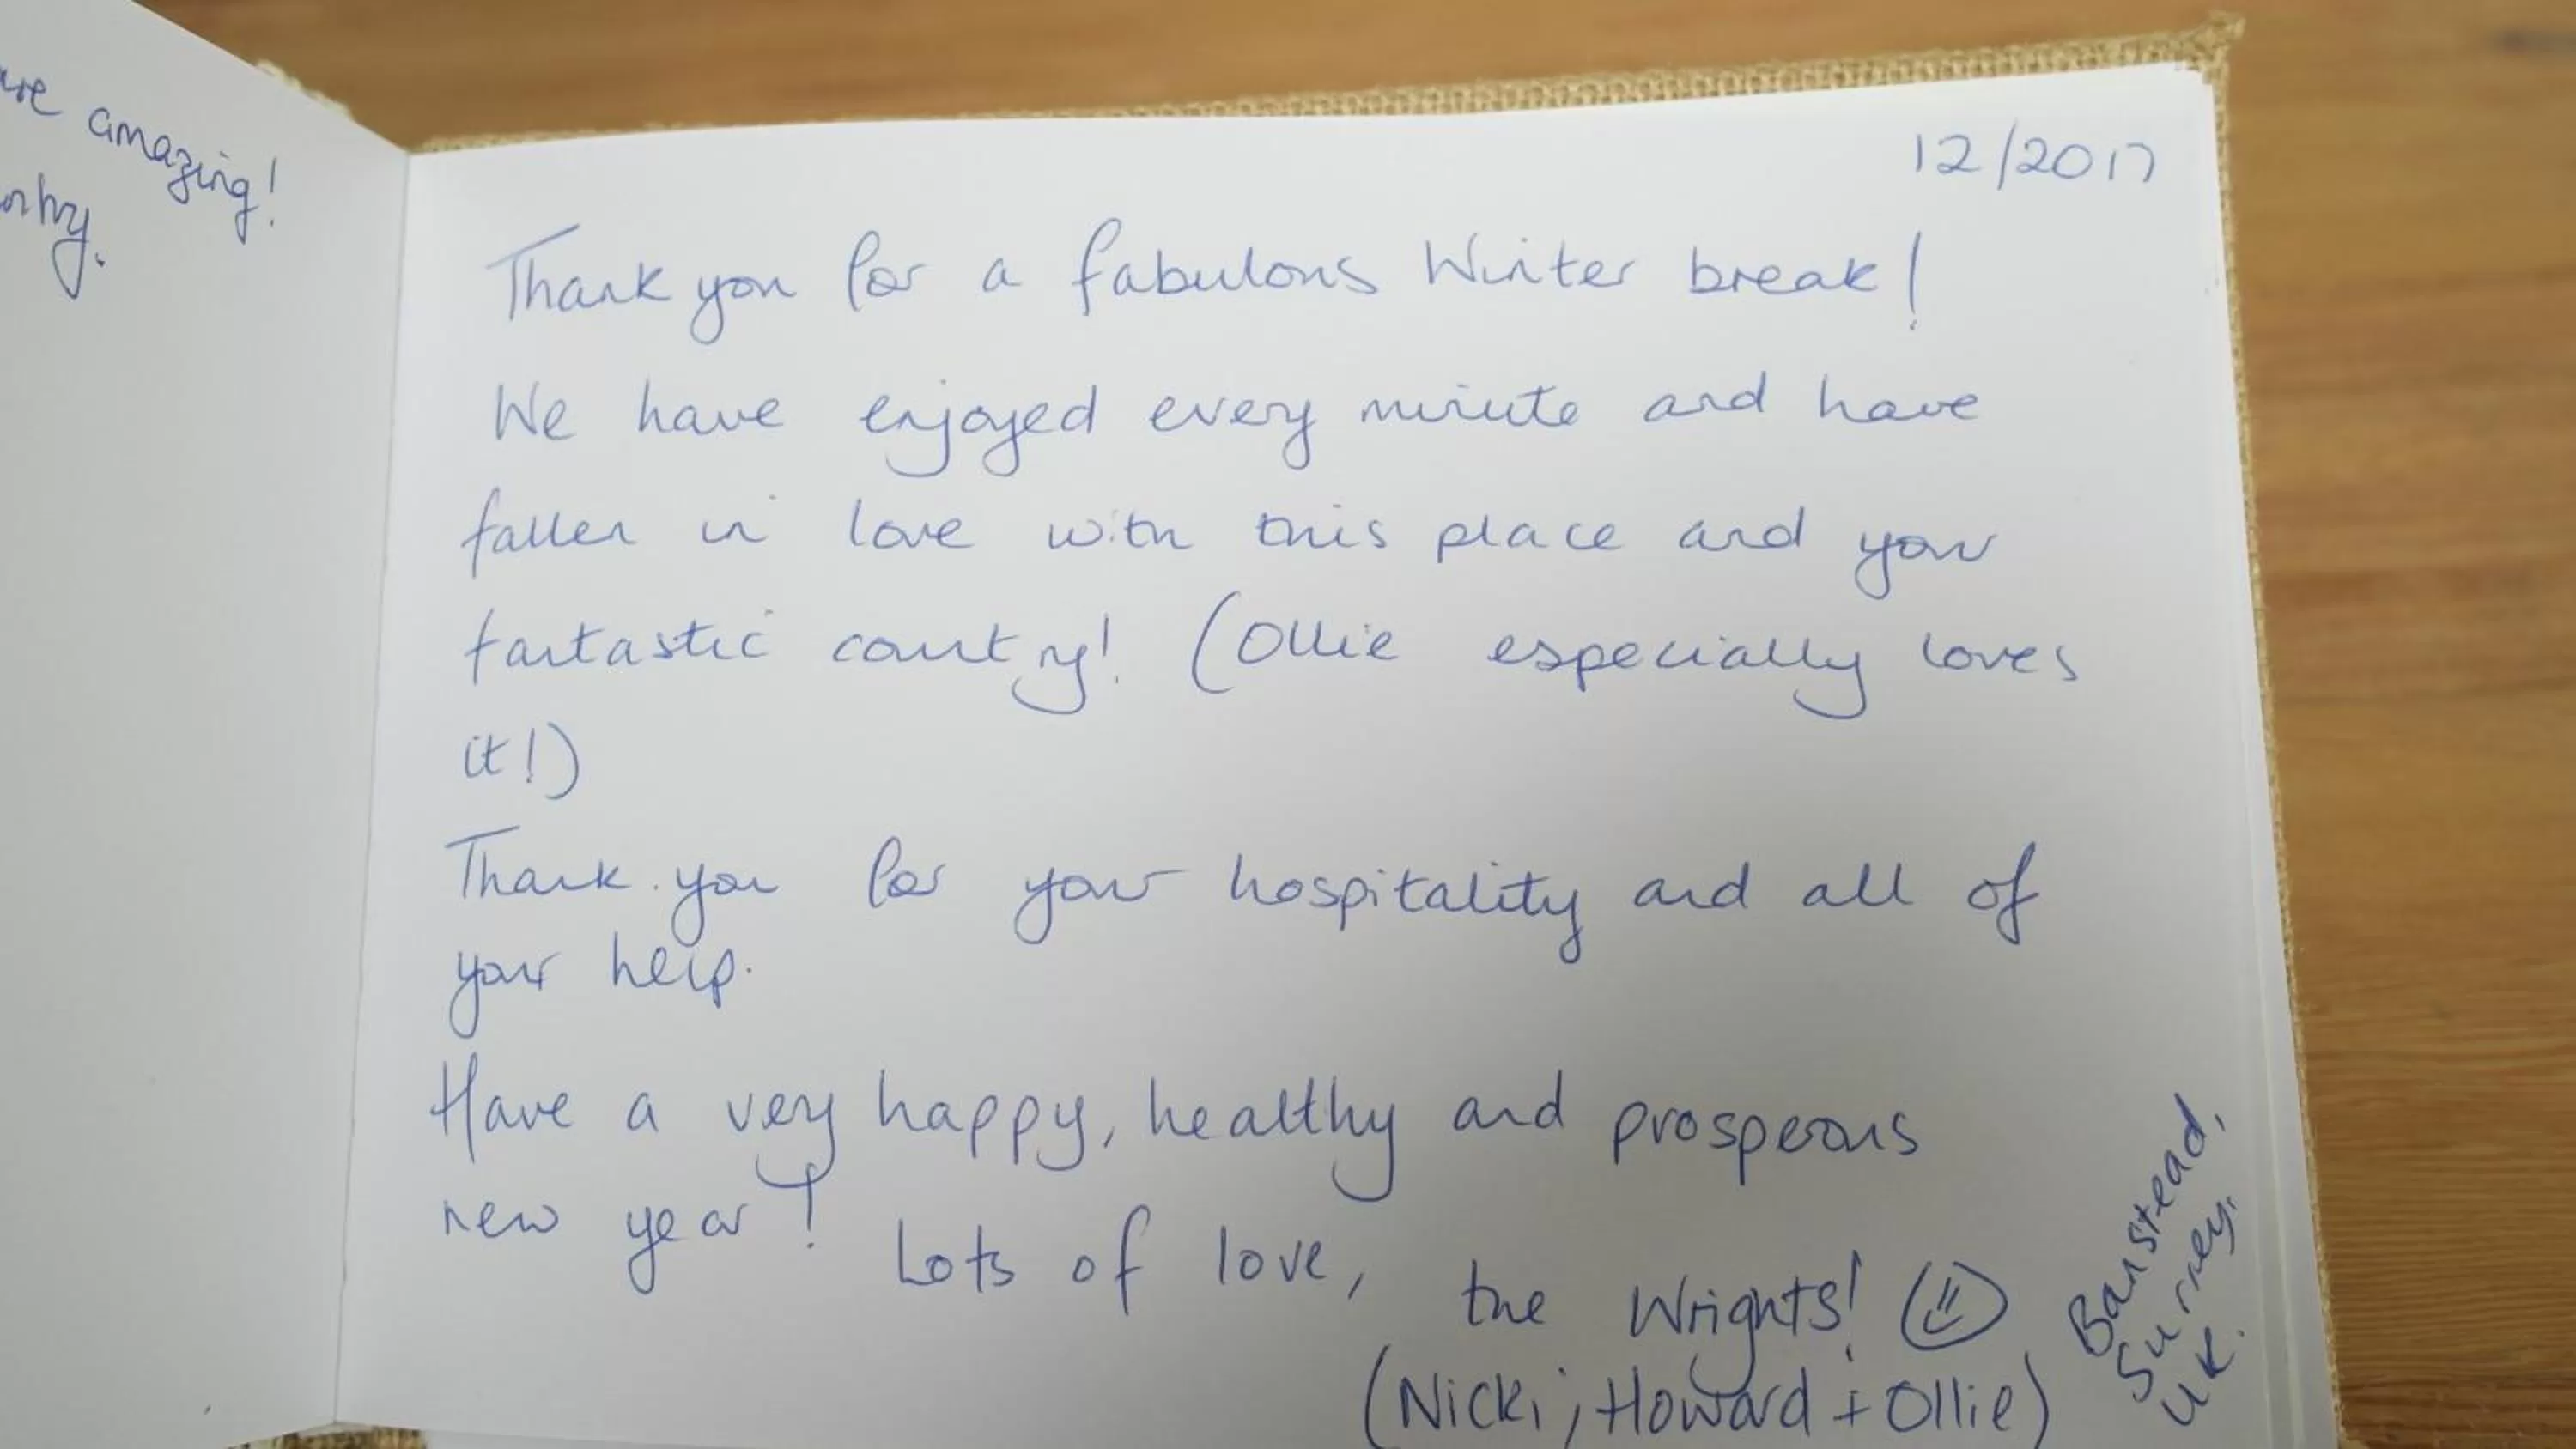 are amazing!
12/2017
Thank you for a fabulous Winter break!
We have enjoyed every minute and have
fallen in love with this place and your
fantastic country! (Ollie especially loves
it!)
Thank you for your hospitality and all of
your help.
Have a very happy, healthy and prosperous
new year! Lots of love, the Wrights!
(Nicki, Howard + Ollie)
Banstead,
Surrey.
UK.